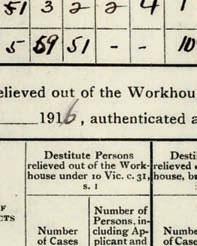 51 3 2 2 4 1
5 59 51 - - 10
elieved out of the Workhou
1916, authenticated a
Destitute Persons
relieved out of the Work-
house under 10 Vic. c. 31,
s. 1
Desti
relieved
house, b
F
CTS
Number
of Cases
Number of
Persons, in-
cluding Ap-
plicant and
Number
of Cases